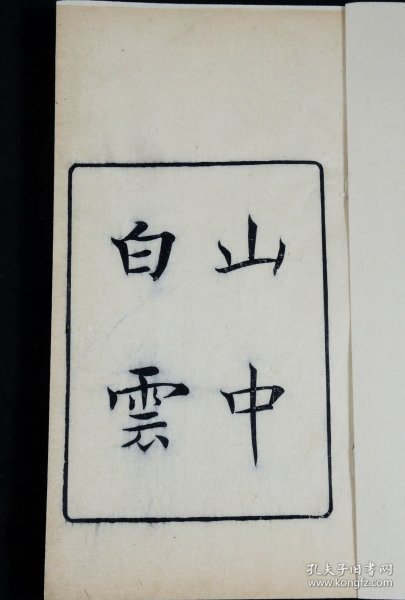 山中
白雲
孔夫子旧书网
https://www.kongfz.com/